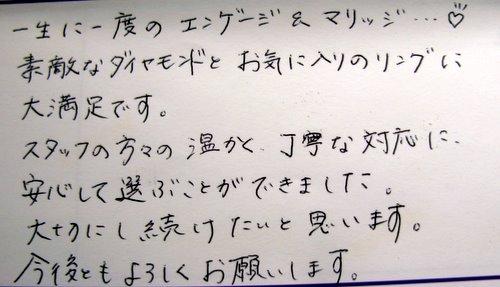 一生に一度の エンゲージ & マリッジ…♡
素敵なダイヤモンドと お気に入りのリングに
大満足です。
スタッフの方々の 温かく、丁寧な対応に、
安心して選ぶことができました。
大切にし続けたいと思います。
今後ともよろしくお願いします。